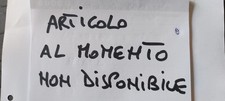 ARTICOLO
AL MOMENTO
NON DISPONIBILE